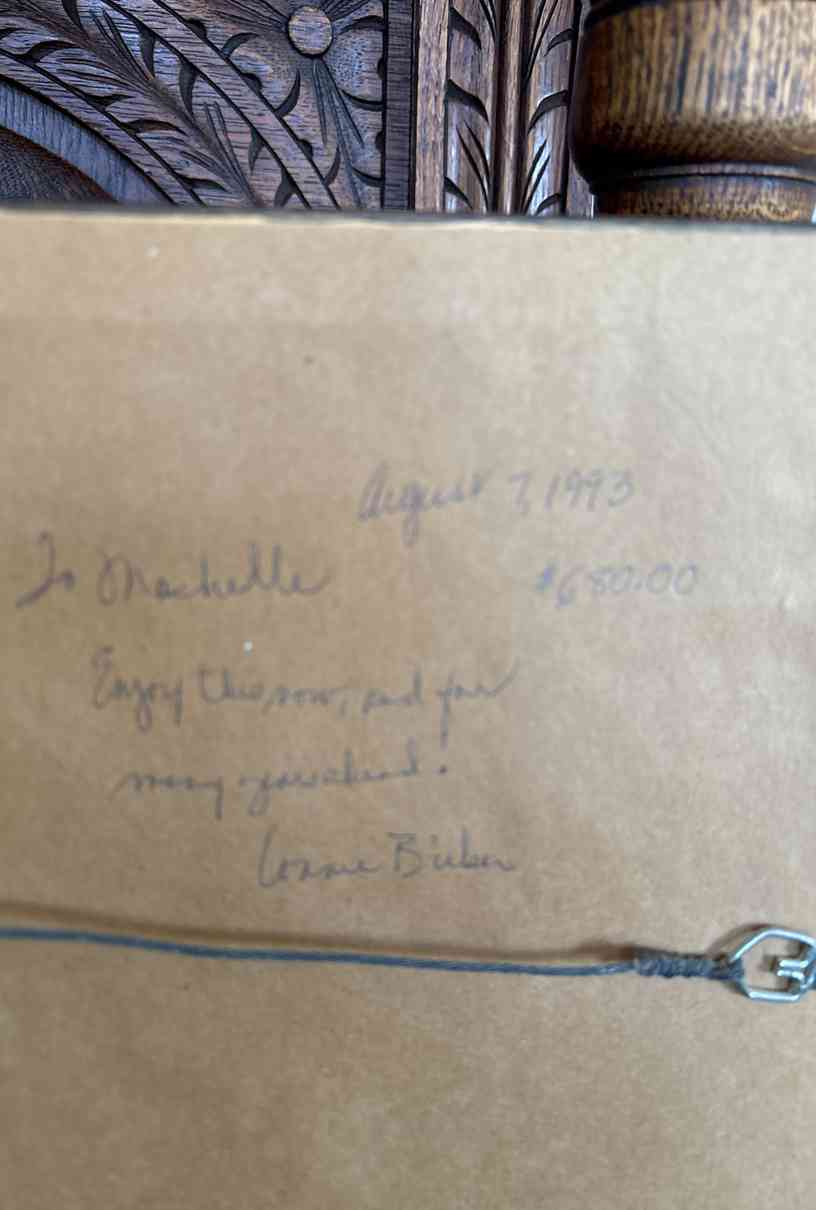 August 7, 1993
To Machelle $680.00
Enjoy this now, and for
many years ahead!
Connie Bieber